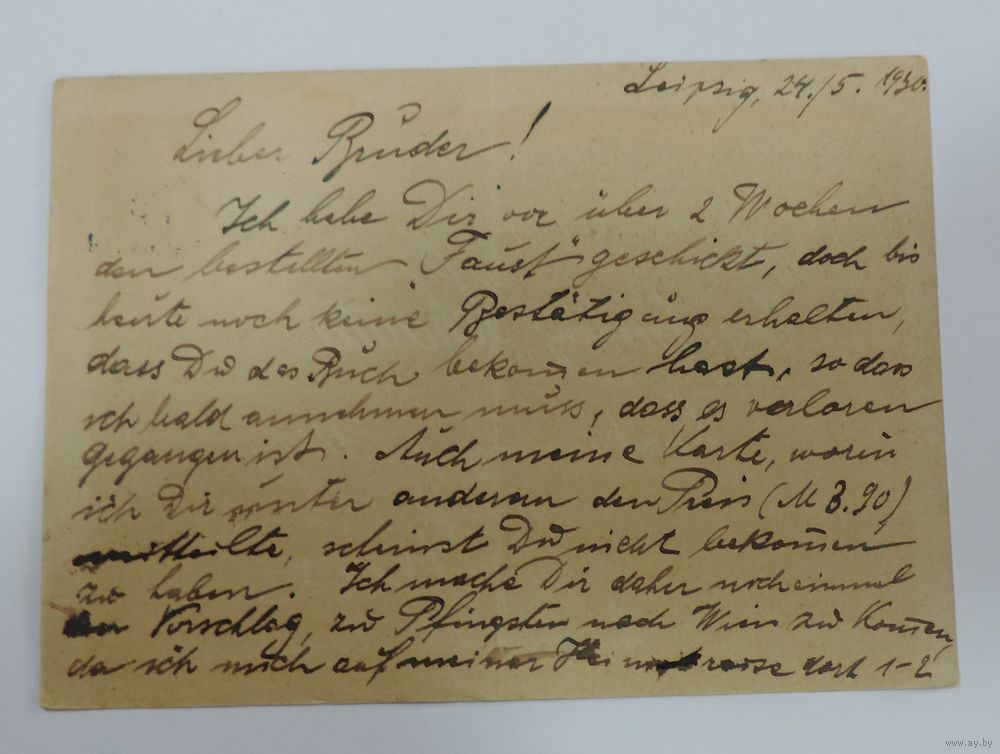 Leipzig, 24./5. 1930.
Lieber Bruder!
Ich habe Dir vor über 2 Wochen
den bestellten „Faust“ geschickt, doch bis
heute noch keine Bestätigung erhalten,
dass Du das Buch bekom̄en hast, so dass
ich bald annehmen muss, dass es verloren
gegangen ist. Auch meine Karte, worin
ich Dir unter anderem den Preis (M 3.90)
mitteilte, scheinst Du nicht bekom̄en
zu haben. Ich mache Dir daher noch einmal
den Vorschlag, zu Pfingsten nach Wien zu kom̄en,
da ich mich auf meiner Heimatreise dort 1-2
www.ay.by